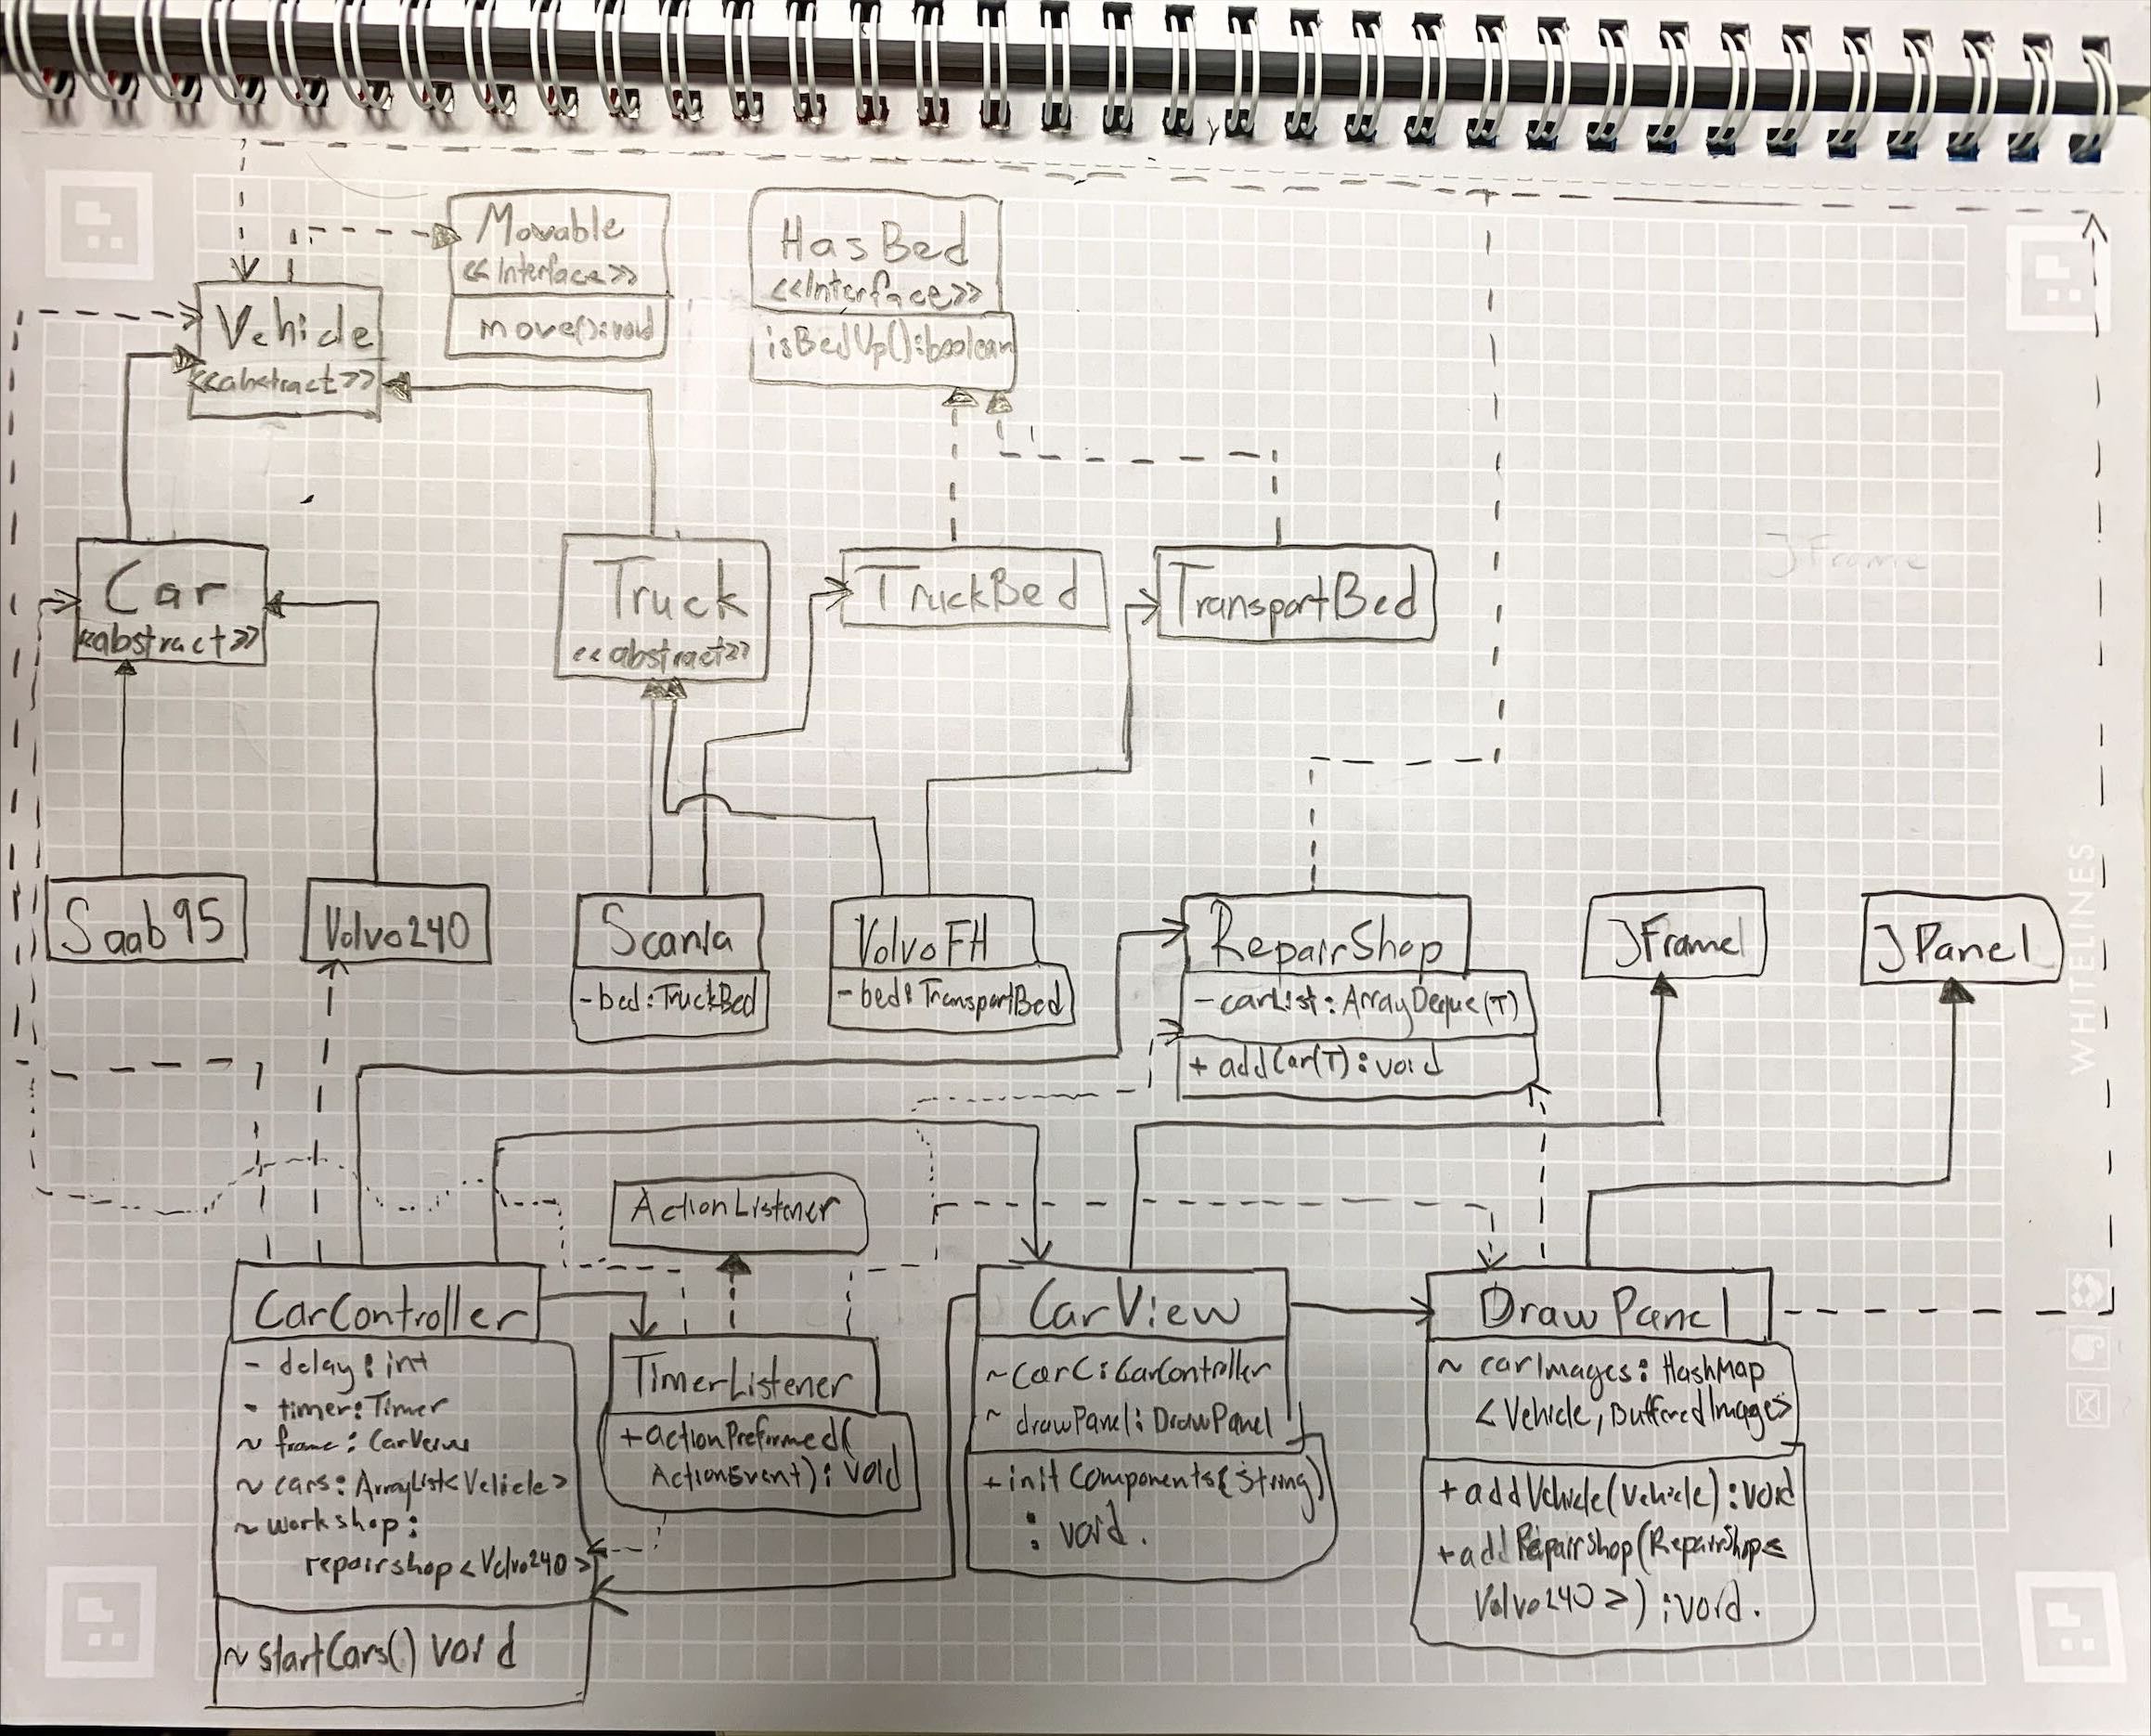 Movable
<<Interface>>
move():void
HasBed
<<Interface>>
isBedUp():boolean
Vehicle
<<abstract>>
JFrame
Car
<<abstract>>
Truck
<<abstract>>
TruckBed
TransportBed
WHITELINES
Saab95
Volvo240
Scania
-bed:TruckBed
VolvoFH
-bed:TransportBed
RepairShop
-carList:ArrayDeque(T)
+addCar(T):void
JFrame
JPanel
ActionListener
CarController
- delay:int
- timer:Timer
~ frame:
~ cars:ArrayList<Vehicle>
~ workshop:
repairshop<Volvo240>
~startCars() void
TimerListener
+actionPreformed(
ActionEvent):void
CarView
~carC:CarController
~ drawPanel:DrawPanel
+initComponents(String)
:void.
DrawPanel
~ carImages:HashMap
<Vehicle,BufferedImage>
+addVehicle(Vehicle):void
+addRepairShop(RepairShop<
Volvo240>):void.